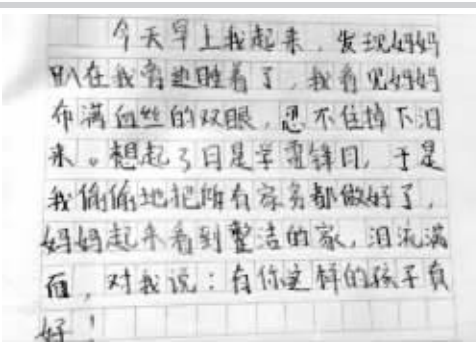 今天早上我起来，发现妈妈
趴在我旁边睡着了，我看见妈妈
布满血丝的双眼，忍不住掉下泪
来。想起3日是学雷锋日，于是
我偷偷地把所有家务都做好了，
妈妈起来看到整洁的家，泪流满
面，对我说：有你这样的孩子真
好！